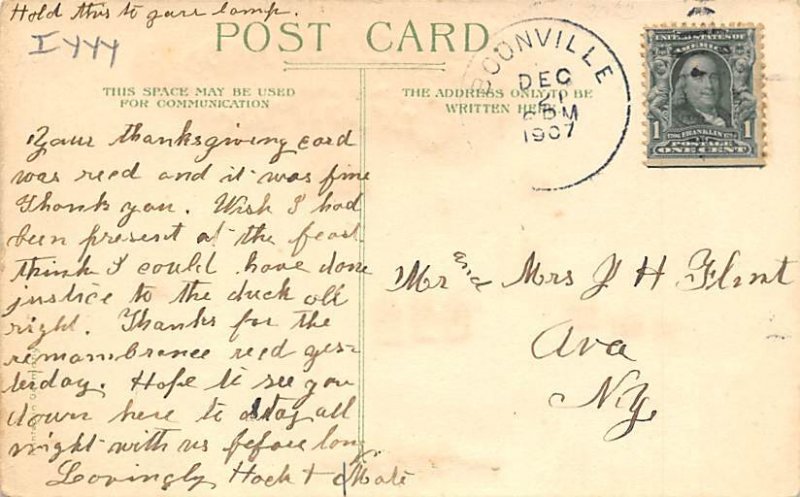 Hold this to your lamp.
POST CARD
THIS SPACE MAY BE USED
FOR COMMUNICATION
THE ADDRESS ONLY TO BE
WRITTEN HERE
BOONVILLE
DEC
21
PM
1907
UNITED STATES OF
AMERICA
1 FRANKLIN 1
POSTAGE
ONE CENT
Your thanksgiving card
was recd and it was fine
Thank you. Wish I had
been present at the feast
think I could have done
justice to the duck all
right. Thanks for the
remambrance recd yes-
terday. Hope to see you
down here to stay all
night with us before long.
Lovingly
Mr and Mrs J H Flint
Ava
N.Y.